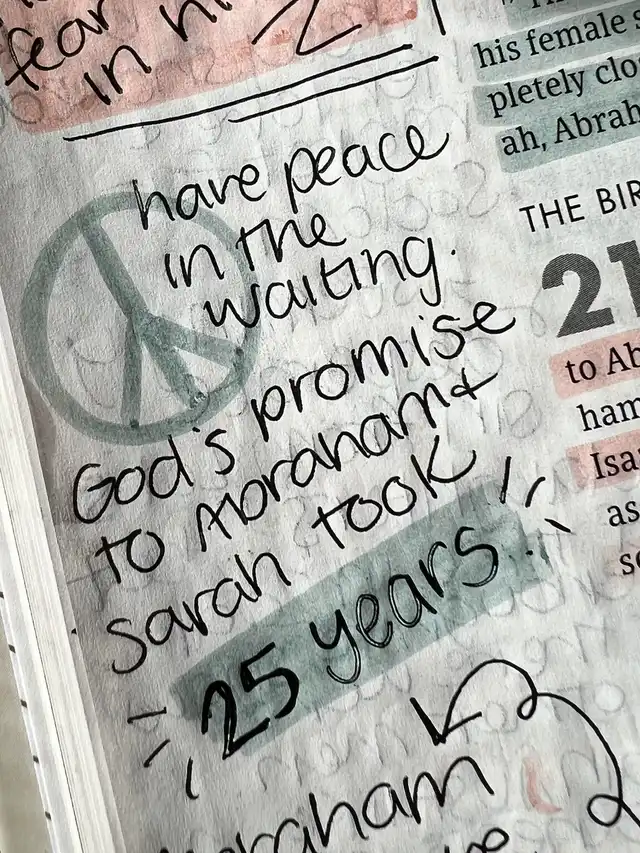 fear
in
have peace
in the
waiting.
God's promise
to Abraham &
Sarah took
25 years.
his female
pletely clo
ah, Abrah
THE BIR
21
to Ab
ham
Isa
as